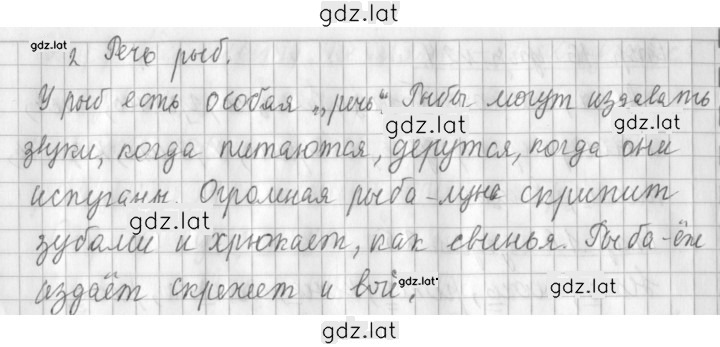 gdz.lat
gdz.lat
2 Речь рыб.
У рыб есть особая „речь“. Рыбы могут издавать
gdz.lat gdz.lat
звуки, когда питаются, дерутся, когда они
испуганы. Огромная рыба-луна скрипит
gdz.lat
зубами и хрюкает, как свинья. Рыба-ёж
издаёт скрежет и вой.
gdz.lat gdz.lat
gdz.lat